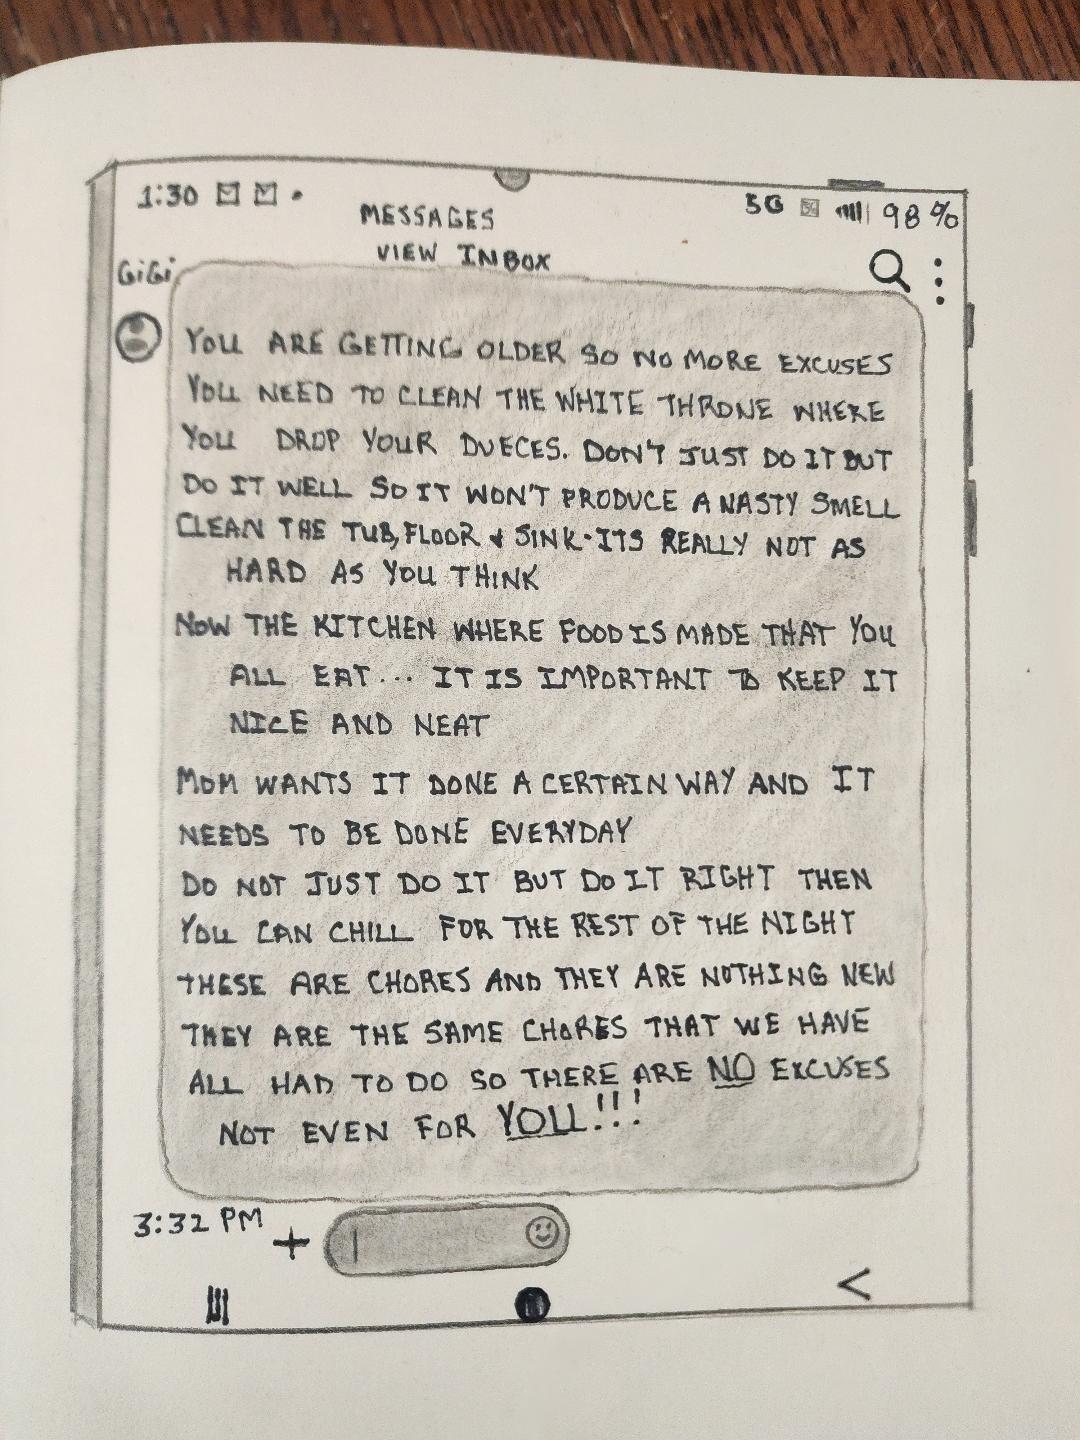 1:30
5G 98%
MESSAGES
VIEW INBOX
GiGi
YOU ARE GETTING OLDER SO NO MORE EXCUSES
YOU NEED TO CLEAN THE WHITE THRONE WHERE
YOU DROP YOUR DUECES. DON'T JUST DO IT BUT
DO IT WELL SO IT WON'T PRODUCE A NASTY SMELL
CLEAN THE TUB, FLOOR & SINK-ITS REALLY NOT AS
HARD AS YOU THINK
NOW THE KITCHEN WHERE FOOD IS MADE THAT YOU
ALL EAT... IT IS IMPORTANT TO KEEP IT
NICE AND NEAT
MOM WANTS IT DONE A CERTAIN WAY AND IT
NEEDS TO BE DONE EVERYDAY
DO NOT JUST DO IT BUT DO IT RIGHT THEN
YOU CAN CHILL FOR THE REST OF THE NIGHT
THESE ARE CHORES AND THEY ARE NOTHING NEW
THEY ARE THE SAME CHORES THAT WE HAVE
ALL HAD TO DO SO THERE ARE NO EXCUSES
NOT EVEN FOR YOU!!!
3:32 PM